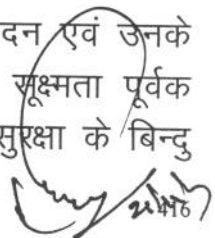 दन एवं उनके
सूक्ष्मता पूर्वक
सुरक्षा के बिन्दु
416